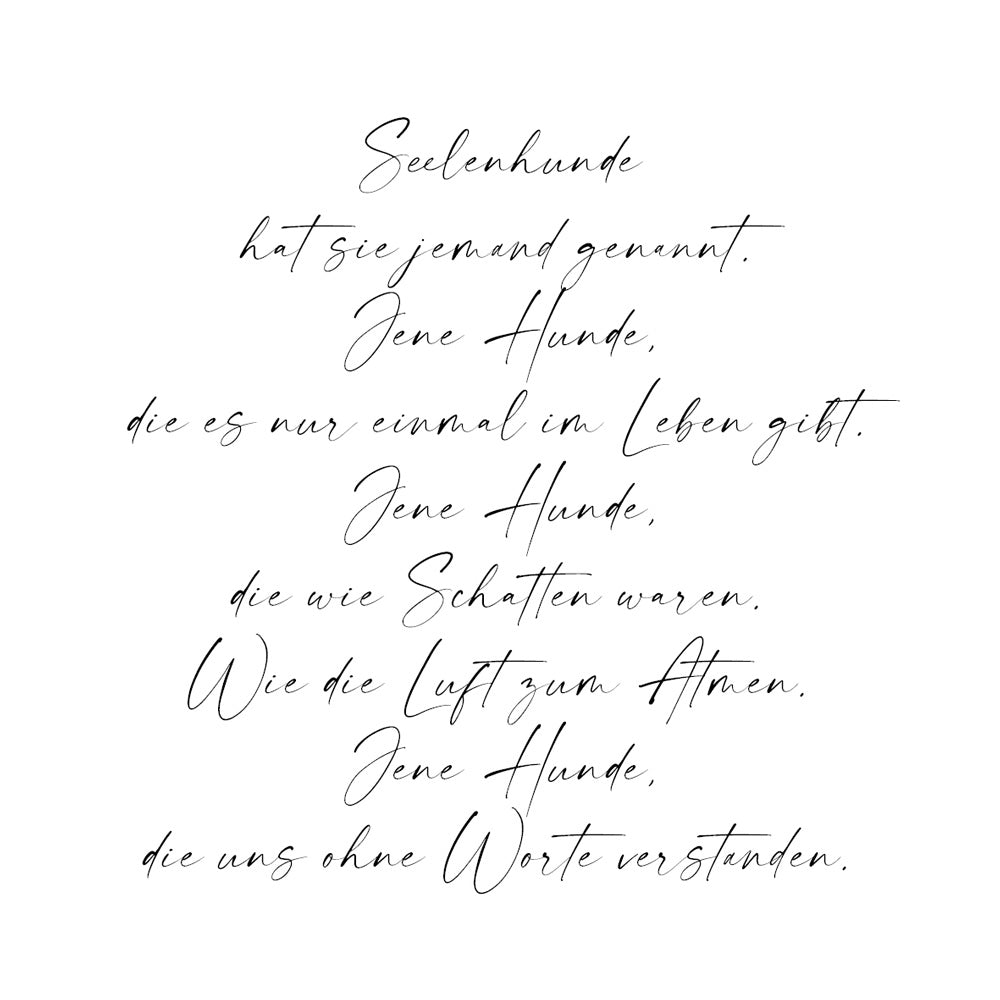 Seelenhunde
hat sie jemand genannt.
Jene Hunde,
die es nur einmal im Leben gibt.
Jene Hunde,
die wie Schatten waren.
Wie die Luft zum Atmen.
Jene Hunde,
die uns ohne Worte verstanden.